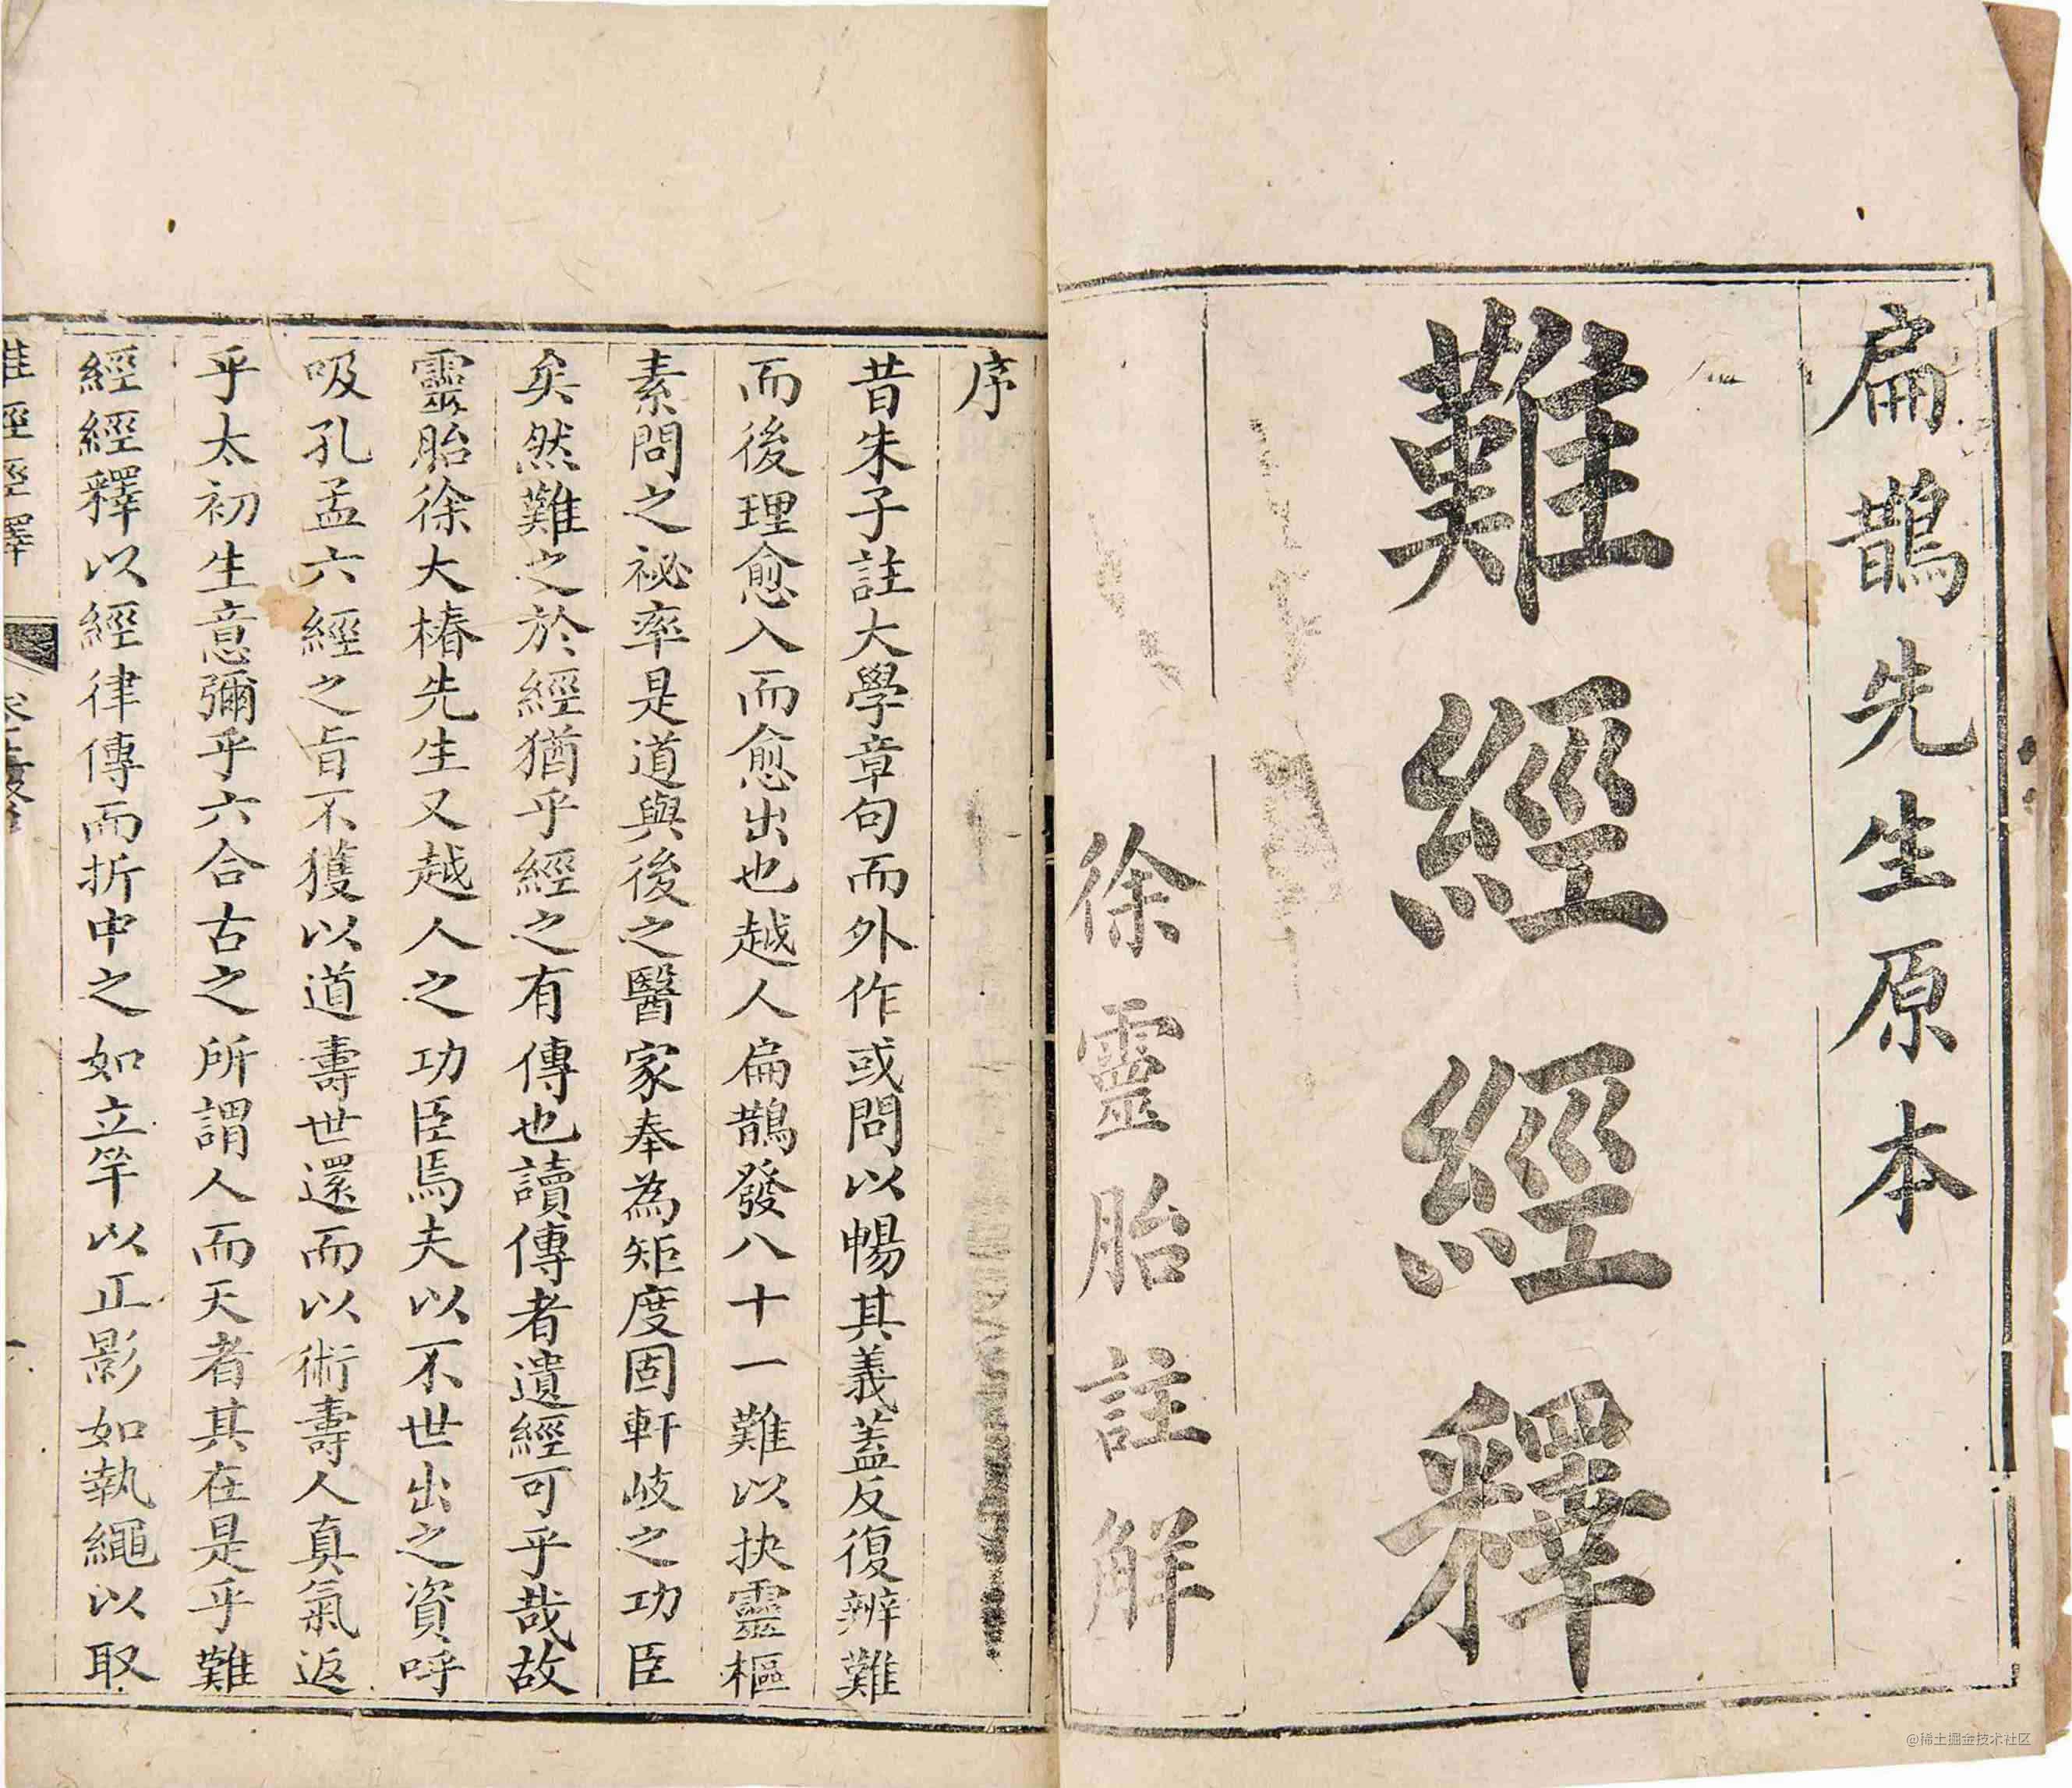 扁鵲先生原本
難經經釋
徐靈胎註解
序
昔朱子註大學章句而外作或問以暢其義蓋反復辨難
而後理愈入而愈出也越人扁鵲發八十一難以抉靈樞
素問之祕率是道與後之醫家奉為矩度固軒岐之功臣
矣然難之於經猶乎經之有傳也讀傳者遺經可乎哉故
靈胎徐大椿先生又越人之功臣焉夫以不世出之資呼
吸孔孟六經之旨不獲以道壽世還而以術壽人真氣返
乎太初生意彌乎六合古之所謂人而天者其在是乎難
經經釋以經律傳而折中之如立竿以正影如執繩以取
難經經釋
一
@稀土掘金技术社区